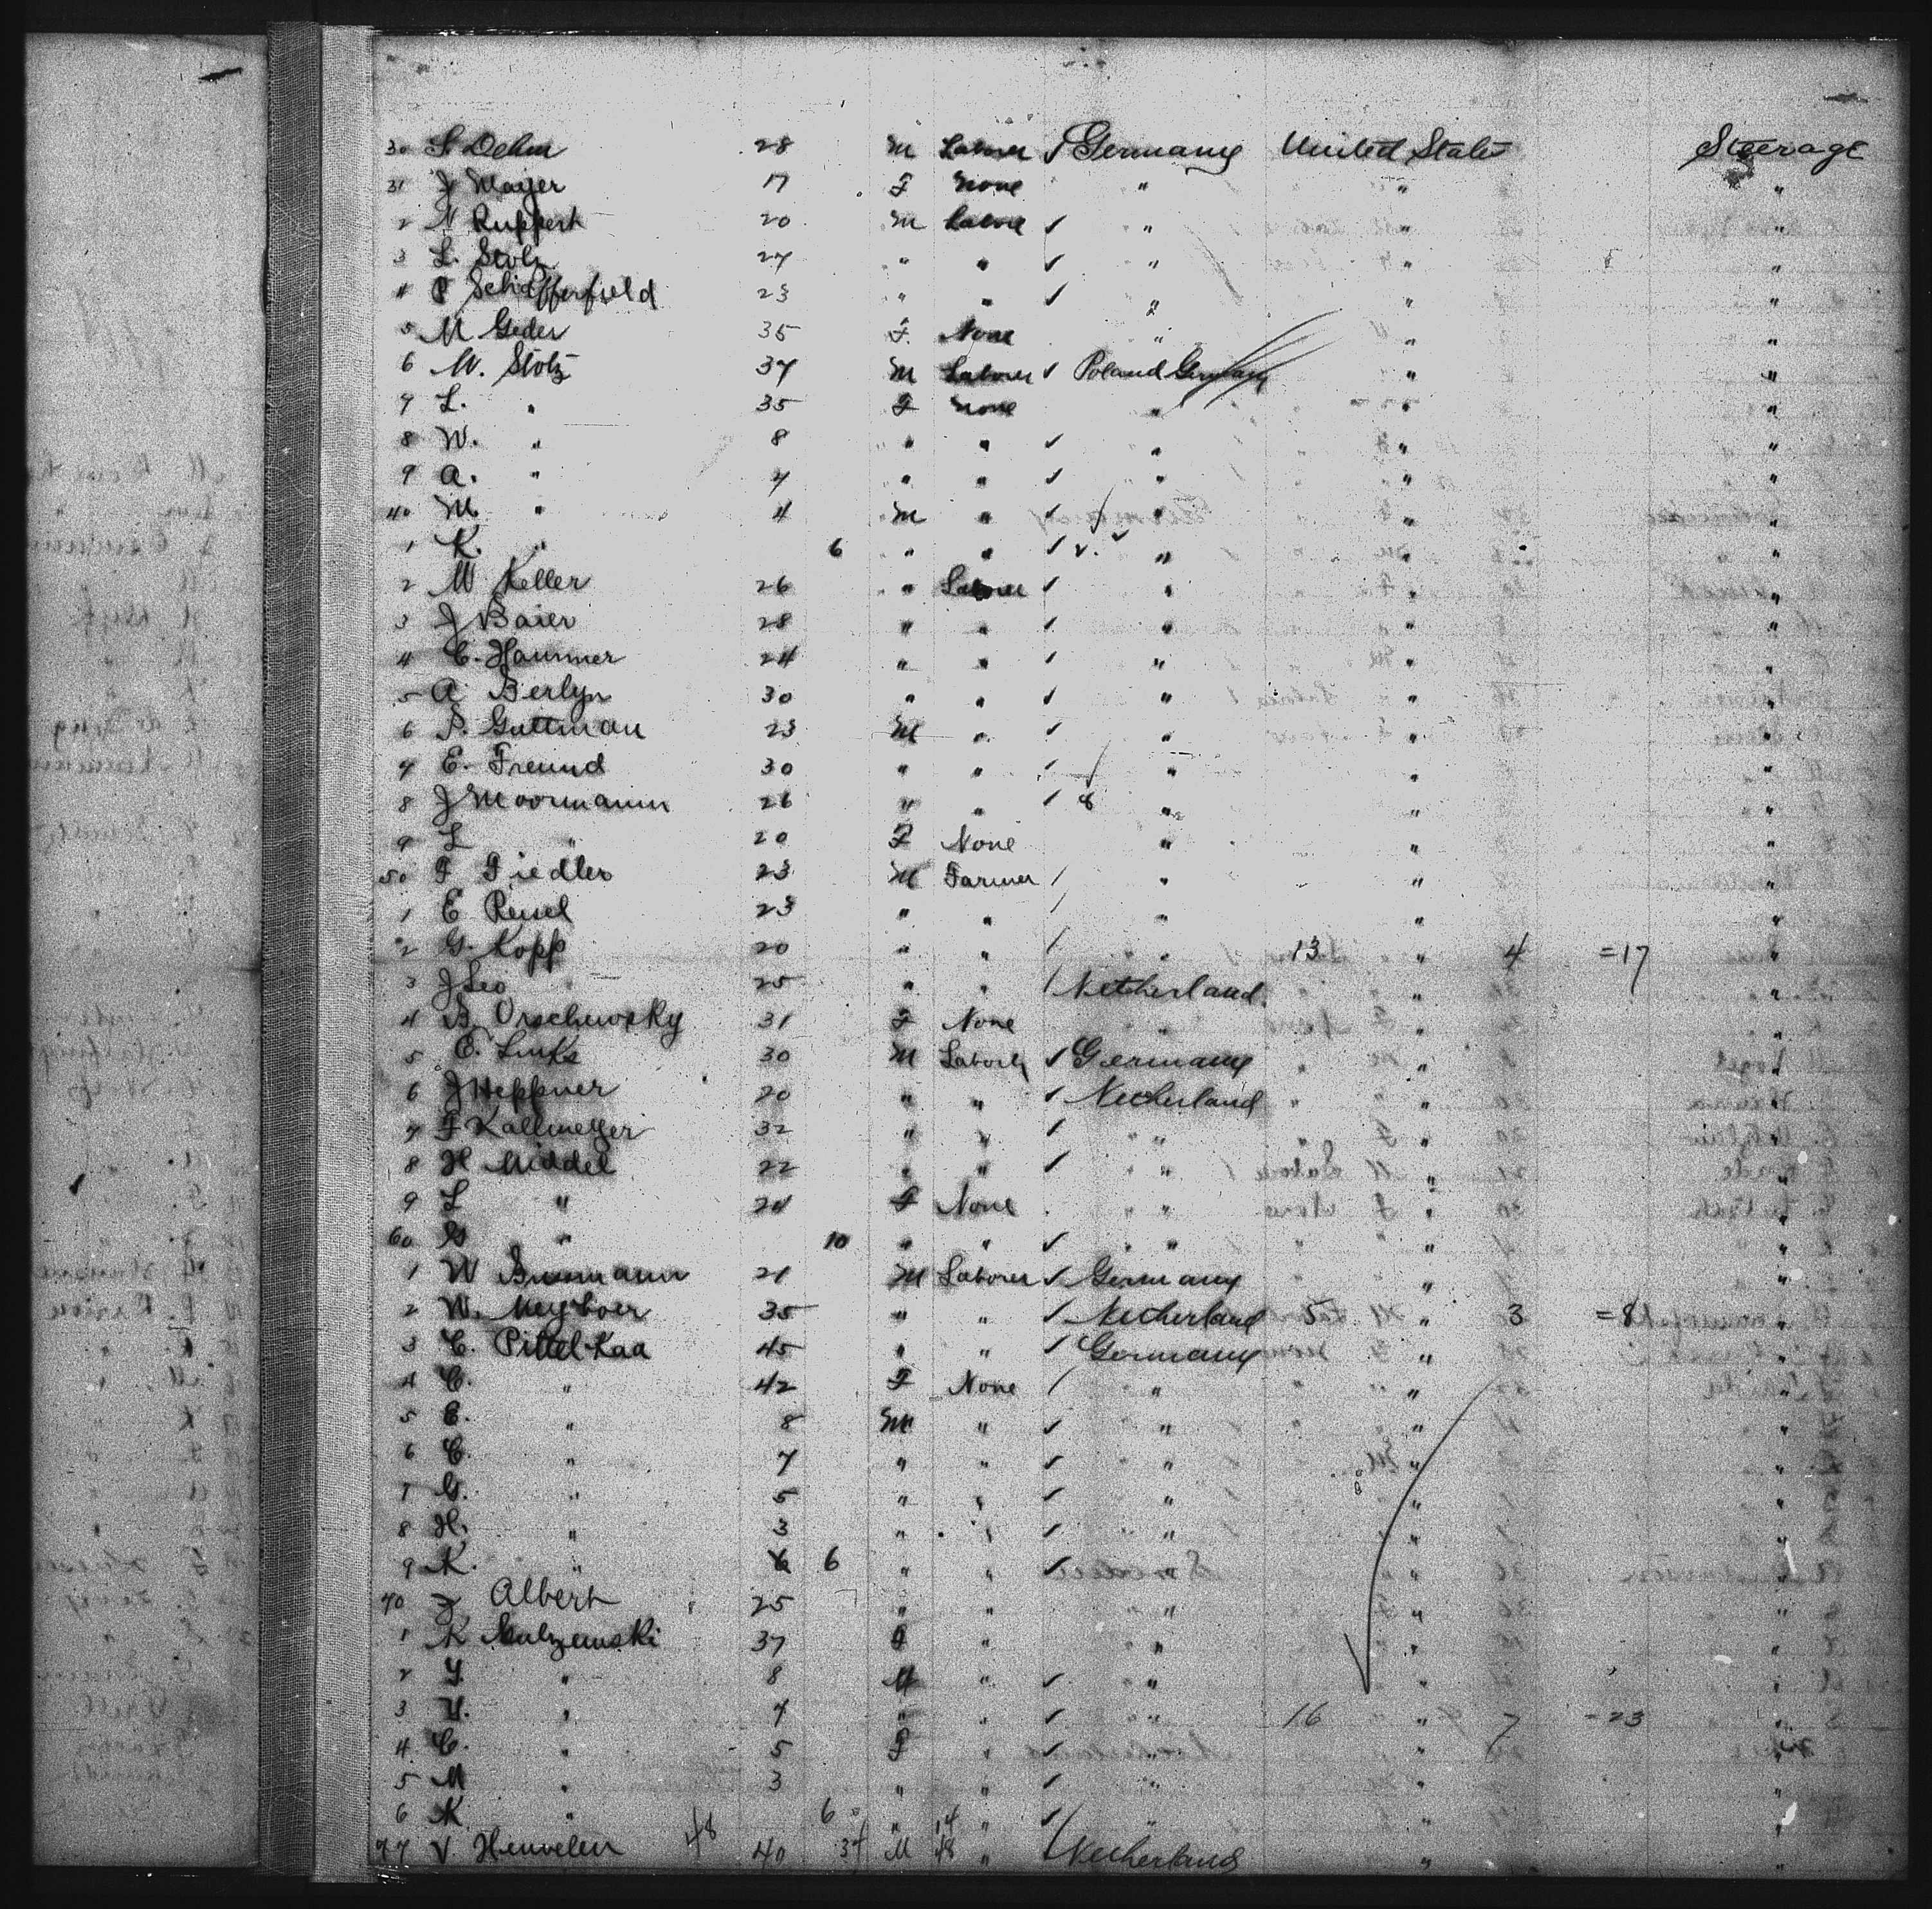 30 S. Dehm 28 M Laborer ✓ Germany United States Steerage
31 J Mayer 17 F None " " "
2 N Ruppert 20 M Labore ✓ " " "
3 L. Stolz 27 " " ✓ " " "
4 P Schäfferfield 23 " " ✓ " " "
5 M. Geder 35 F. None " " "
6 M. Stolz 37 M Laborer ✓ Poland Germany " "
7 L. " 35 F None " " "
8 W. " 8 " " ✓ " " "
9 A. " 7 " " ✓ " " "
40 M. " 4 M " ✓ " " "
1 K. " 6 " " ✓ " " "
2 M Keller 26 " Laborer ✓ " " "
3 J Baier 28 " " ✓ " " "
4 C. Hammer 24 " " ✓ " " "
5 A Berlyn 30 " " ✓ " " "
6 P. Guttman 23 M " ✓ " " "
7 E. Freund 30 " " ✓ " " "
8 J Moormann 26 " " ✓ 8 " " "
9 L " 20 F None " " "
50 F Fiedler 23 M Farmer / " " "
1 E 23 " " / " " "
2 G. Kopp 20 " " / " 13 " 4 =17 "
3 J Leo 25 " " / Netherland " "
4 B. Orschewsky 31 F None " " "
5 E. Links 30 M Laborer ✓ Germany " "
6 J Heppner 20 " " ✓ Netherland " "
7 F Kallmeyer 32 " " ✓ " " "
8 H Middel 22 " " ✓ " " "
9 L " 24 F None " " "
60 G " 10 " " ✓ " " "
1 W 21 M Laborer ✓ Germany " "
2 W. Meyboer 35 " " ✓ Netherland 5 " 3 =8 "
3 C. Pittelkaa 45 " " ✓ Germany " "
4 C. " 42 F None / " " "
5 E. " 8 M " ✓ " " "
6 C. " 7 " " ✓ " " "
7 G. " 5 " " ✓ " " "
8 H. " 3 " " ✓ " " "
9 K. " 6 " " ✓ " " "
70 J Albert 25 " " " " "
1 K 37 F " " " "
2 Y. " 8 M " ✓ " " "
3 U. " 7 " " ✓ " 16 " 7 -23 "
4 C. " 5 F " ✓ " " "
5 M " 3 " " ✓ " " "
6 K " 6 " 14 " ✓ " " "
77 V. Heuvelen 48 40 37 M 48 " / Netherland " "